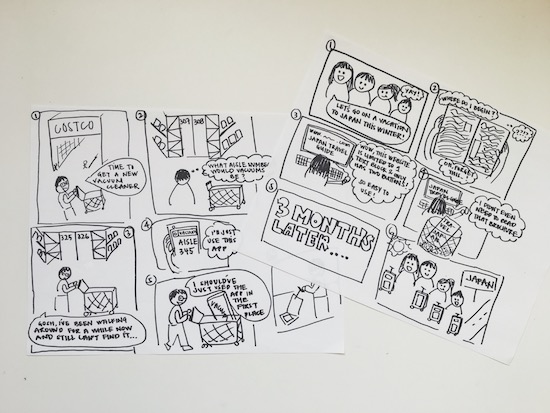 1
COSTCO
TIME TO
GET A NEW
VACUUM
CLEANER
2
307 308
WHAT AISLE NUMBER
WOULD VACUUMS
BE?
3
325 326
GOSH, I'VE BEEN WALKING
AROUND FOR A WHILE NOW
AND STILL CAN'T FIND IT...
4
AISLE
345
I'LL JUST
USE THIS
APP
5
I SHOULD'VE
JUST USED THE
APP IN
THE FIRST
PLACE
1
YAY!
LET'S GO ON A VACATION
TO JAPAN THIS WINTER!
2
WHERE DO I BEGIN?
?!?!
OH FORGET
THIS...
3
WWW
JAPAN TRAVEL
GUIDE
WOW, THIS WEBSITE
IS LIMITED TO 1
TEXT FIELD, 2 LINKS
AND TWO BUTTONS!
SO EASY TO
USE!
JAPAN
TRAVEL
GUIDE
I DIDN'T EVEN
NEED TO READ
THAT BROCHURE
5
3 MONTHS
LATER....
6
JAPAN